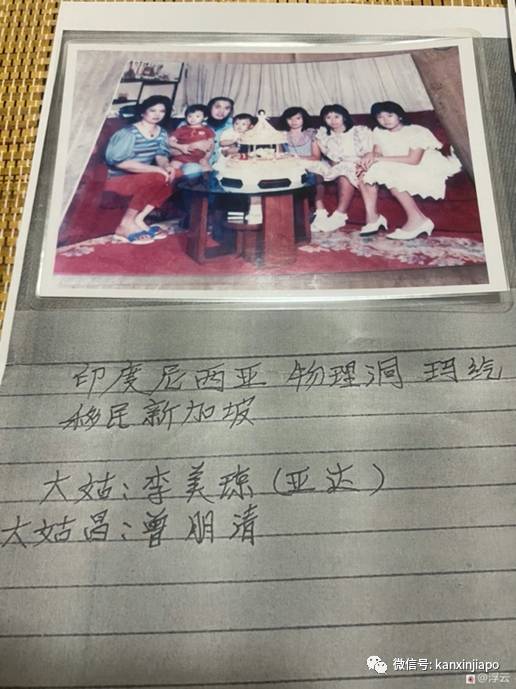 印度尼西亚 物理洞 玛纥
移民新加坡
大姑:李美琼(亚达)
大姑昌:曾朋清
微信号: kanxinjiapo
@浮云